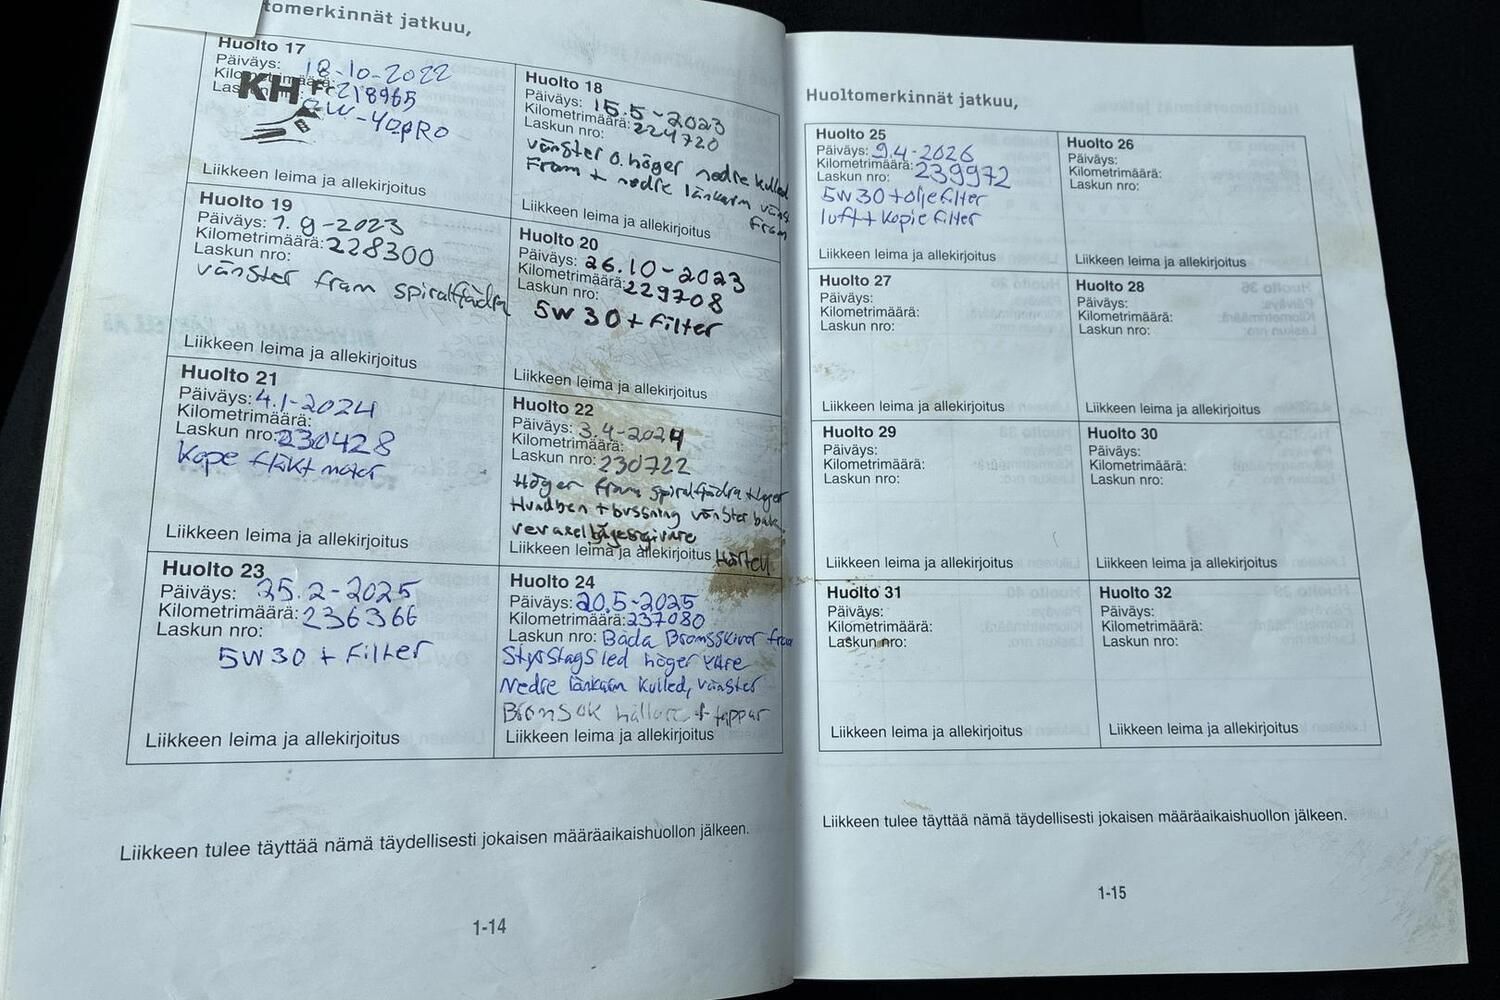 tomerkinnät jatkuu,
Huolto 17
Päiväys: 18-10-2022
Kilometrimäärä: 218965
KH
W-40PRO
Liikkeen leima ja allekirjoitus
Huolto 18
Päiväys: 15.5-2023
Kilometrimäärä: 224720
Laskun nro:
vänster o. höger nedre kulled
Fram + nedre länkarm vänst
Fram
Liikkeen leima ja allekirjoitus
Huolto 19
Päiväys: 1.9-2023
Kilometrimäärä: 228300
Laskun nro:
vänster fram spiralfjädra
Liikkeen leima ja allekirjoitus
Huolto 20
Päiväys: 26.10-2023
Kilometrimäärä: 229708
Laskun nro:
5W30 + Filter
Liikkeen leima ja allekirjoitus
Huolto 21
Päiväys: 4.1-2024
Kilometrimäärä:
Laskun nro: 230428
Kope fläkt motor
Liikkeen leima ja allekirjoitus
Huolto 22
Päiväys: 3.4-2024
Kilometrimäärä:
Laskun nro: 230722
Höger fram spiralfjädra + lager
Hundben + bussning vänster bak
vevaxellägesgivare
Liikkeen leima ja allekirjoitus
Huolto 23
Päiväys: 25.2-2025
Kilometrimäärä: 236366
Laskun nro:
5W30 + Filter
Liikkeen leima ja allekirjoitus
Huolto 24
Päiväys: 20.5-2025
Kilometrimäärä: 237080
Laskun nro: Båda Bromsskivor fram
Styrstagsled höger yttre
Nedre länkarm kulled, vänster
Bromsok hållare + tappar
Liikkeen leima ja allekirjoitus
Liikkeen tulee täyttää nämä täydellisesti jokaisen määräaikaishuollon jälkeen.
1-14
Huoltomerkinnät jatkuu,
Huolto 25
Päiväys: 9.4-2026
Kilometrimäärä: 239972
Laskun nro:
5W30 + olje filter
luft + Kopie filter
Liikkeen leima ja allekirjoitus
Huolto 26
Päiväys:
Kilometrimäärä:
Laskun nro:
Liikkeen leima ja allekirjoitus
Huolto 27
Päiväys:
Kilometrimäärä:
Laskun nro:
Liikkeen leima ja allekirjoitus
Huolto 28
Päiväys:
Kilometrimäärä:
Laskun nro:
Liikkeen leima ja allekirjoitus
Huolto 29
Päiväys:
Kilometrimäärä:
Laskun nro:
Liikkeen leima ja allekirjoitus
Huolto 30
Päiväys:
Kilometrimäärä:
Laskun nro:
Liikkeen leima ja allekirjoitus
Huolto 31
Päiväys:
Kilometrimäärä:
Laskun nro:
Liikkeen leima ja allekirjoitus
Huolto 32
Päiväys:
Kilometrimäärä:
Laskun nro:
Liikkeen leima ja allekirjoitus
Liikkeen tulee täyttää nämä täydellisesti jokaisen määräaikaishuollon jälkeen.
1-15